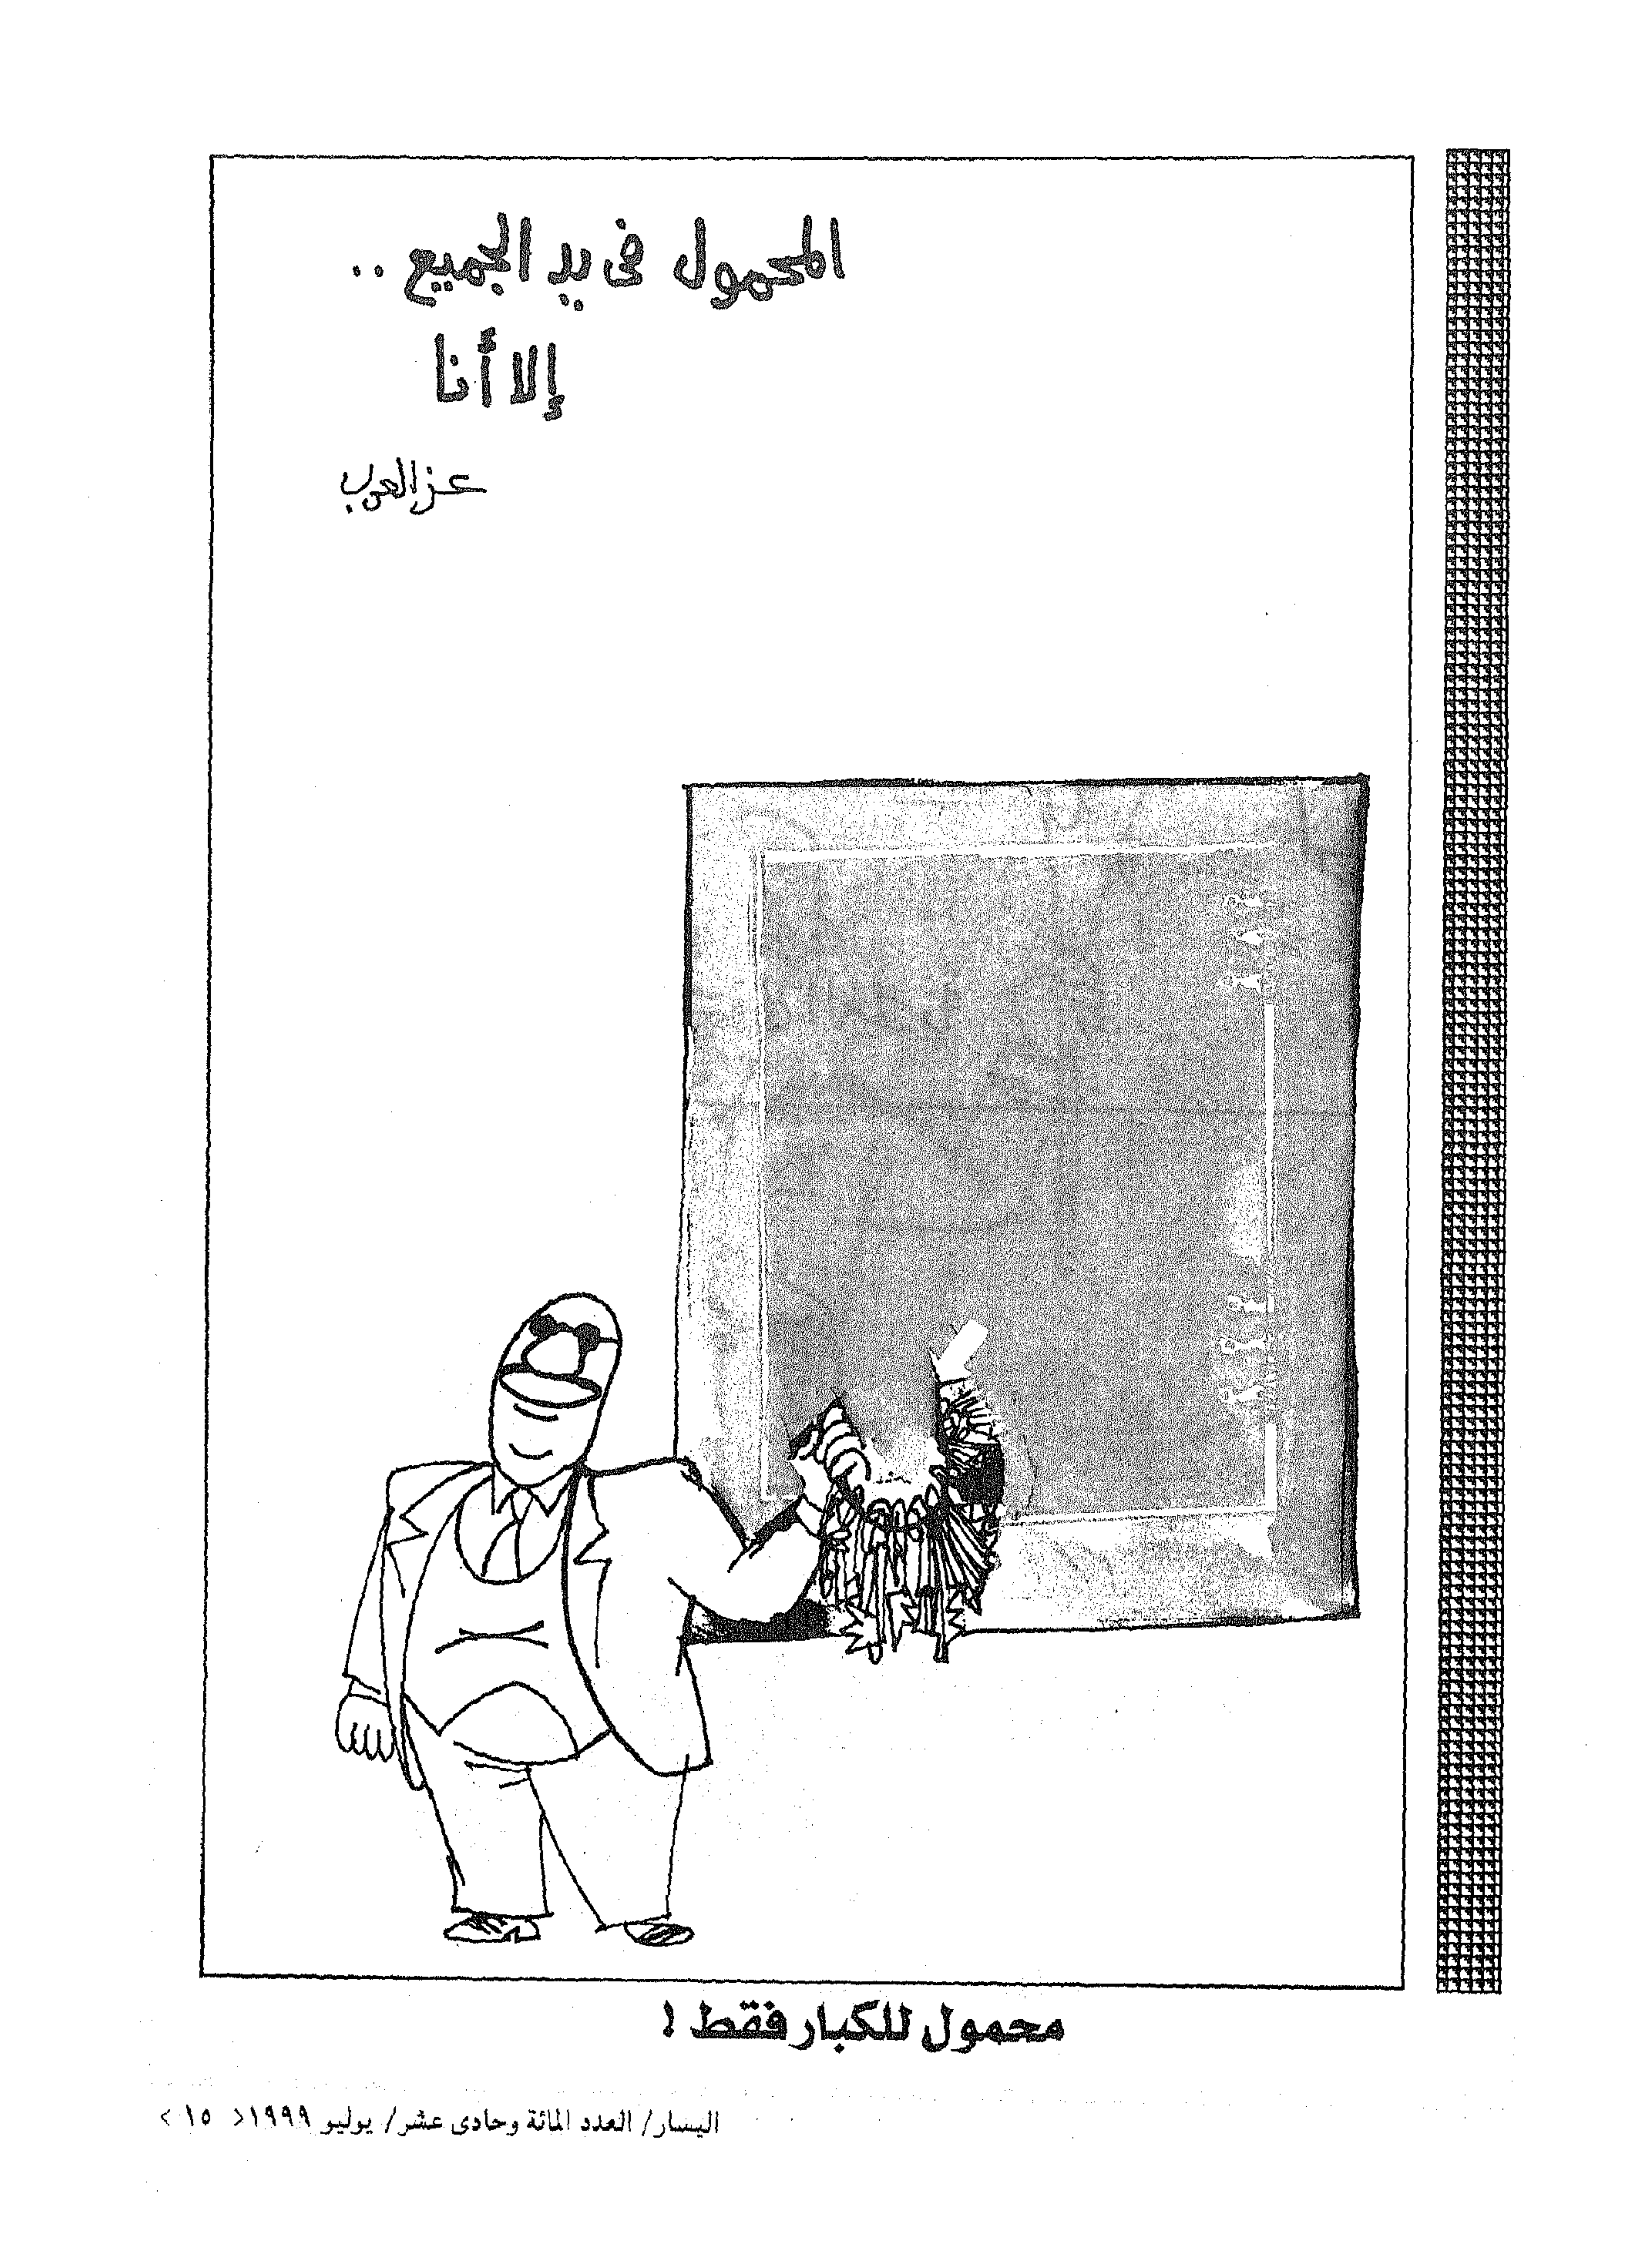 المحمول فى يد الجميع ..
إلا أنا
عز العرب
محمول للكبار فقط !
اليسار/ العدد المائة وحادى عشر/ يوليو ١٩٩٩< ١٥ >